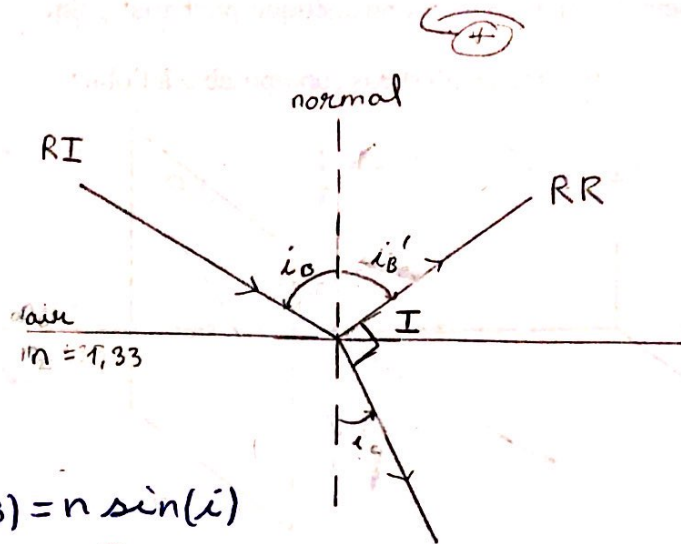 +
normal
RI
RR
i_B
i_B'
air
I
n = 1,33
) = n sin(i)